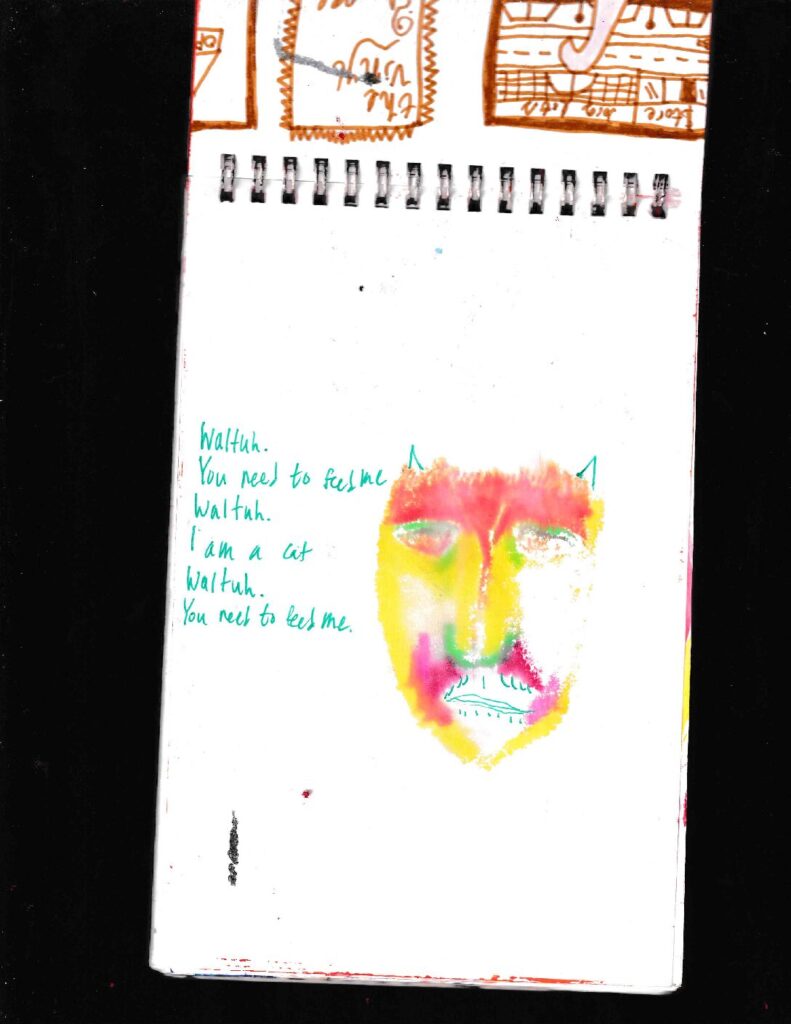 the
vinyl
store
Waltuh.
You need to feed me
Waltuh.
I am a cat
Waltuh.
You need to feed me.